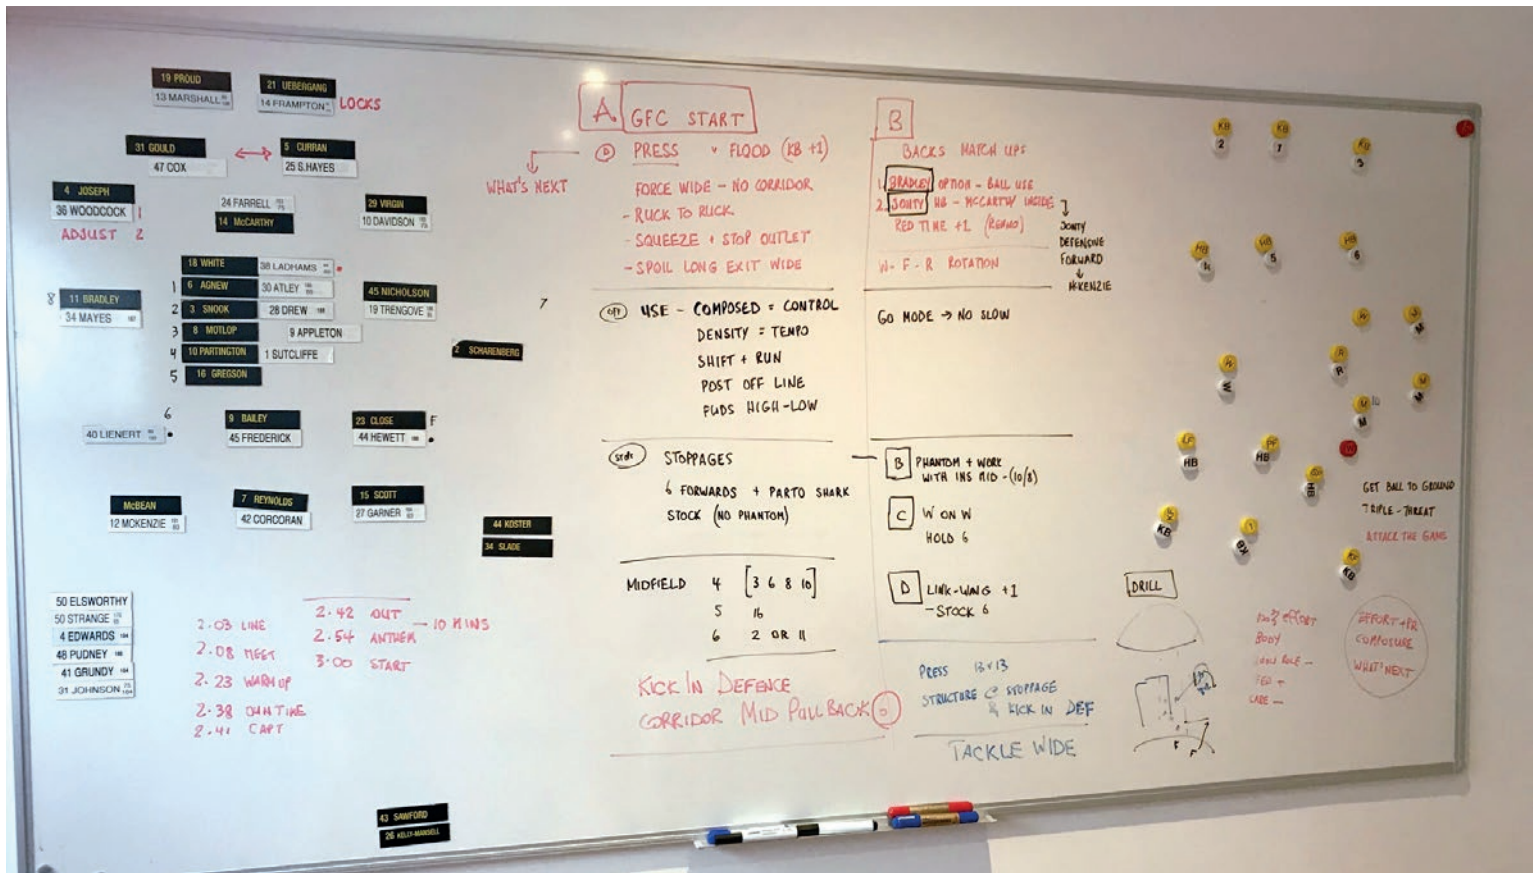 19 PROUD
13 MARSHALL
21 UEBERGANG
14 FRAMPTON
LOCKS
31 GOULD
47 COX
5 CURRAN
25 S.HAYES
4 JOSEPH
36 WOODCOCK 1
ADJUST 2
24 FARRELL
14 McCARTHY
29 VIRGIN
10 DAVIDSON
18 WHITE
38 LADHAMS
1 6 AGNEW
30 ATLEY
2 3 SNOOK
28 DREW
3 8 MOTLOP
9 APPLETON
4 10 PARTINGTON
1 SUTCLIFFE
5 16 GREGSON
8 11 BRADLEY
34 MAYES
45 NICHOLSON
19 TRENGOVE
7
2 SCHARENBERG
6
40 LIENERT
9 BAILEY
45 FREDERICK
23 CLOSE F
44 HEWETT
McBEAN
12 MCKENZIE
7 REYNOLDS
42 CORCORAN
15 SCOTT
27 GARNER
44 KOSTER
34 SLADE
50 ELSWORTHY
50 STRANGE
4 EDWARDS
48 PUDNEY
41 GRUNDY
31 JOHNSON
2.03 LINE
2.08 MEET
2.23 WARM UP
2.38 OWN TIME
2.41 CAPT
2.42 OUT
2.54 ANTHEM
3.00 START
10 MINS
43 SAWFORD
26 KELLY-MANSELL
A GFC START
D PRESS
FLOOD (KB +1)
WHAT'S NEXT
FORCE WIDE - NO CORRIDOR
- RUCK TO RUCK
- SQUEEZE + STOP OUTLET
- SPOIL LONG EXIT WIDE
OFF USE - COMPOSED = CONTROL
DENSITY = TEMPO
SHIFT + RUN
POST OFF LINE
FWDS HIGH-LOW
STOPPAGES
6 FORWARDS + PARTO SHARK
STOCK (NO PHANTOM)
MIDFIELD 4 [3 6 8 10]
5 16
6 2 OR 11
KICK IN DEFENCE
CORRIDOR MID PULLBACK
B
BACKS MATCH UPS
1. BRADLEY OPTION - BALL USE
2. JONTY HB - McCARTHY INSIDE
RED TIME +1 (REMMO)
JONTY
DEFENSIVE
FORWARD
McKENZIE
W - F - R ROTATION
GO MODE → NO SLOW
B PHANTOM + WORK
WITH INS MID - (10/8)
C W ON W
HOLD 6
D LINK-WING +1
- STOCK 6
PRESS 13 v 13
STRUCTURE @ STOPPAGE
& KICK IN DEF
TACKLE WIDE
KB
2
KB
1
KB
3
HB
4
HB
5
HB
6
W
W
W
M
R
R
M
M
M 10
M
W
HB
HB
HB
KB
KB
KB
GET BALL TO GROUND
TRIPLE-THREAT
ATTACK THE GAME
DRILL
EFFORT
BODY
EFFORT
COMPOSURE
WHAT'S NEXT